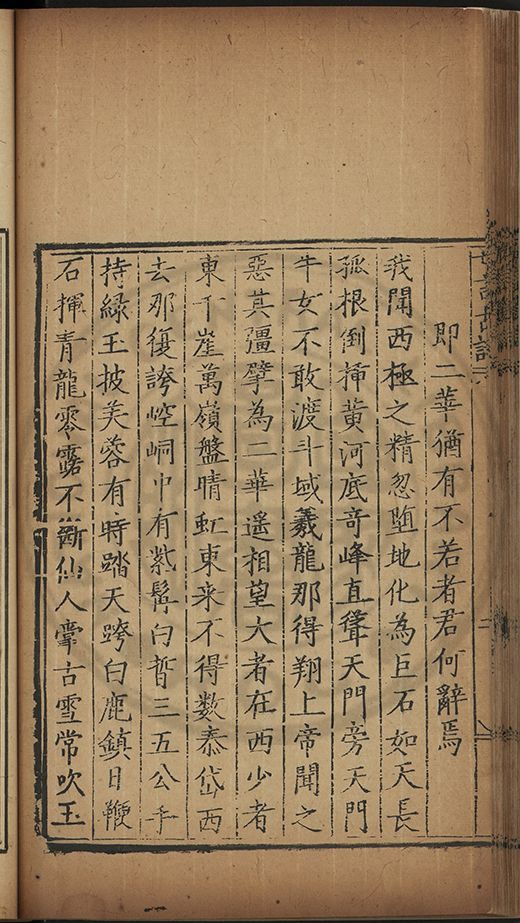 即二華猶有不若者君何辭焉
我聞西極之精忽堕地化為巨石如天長
孤根倒揷黃河底奇峰直聳天門旁天門
牛女不敢渡斗域羲龍那得翔上帝聞之
惡其彊擘為二華遥相望大者在西少者
東千崖萬嶺盤晴虹東来不得數泰岱西
去那復誇崆峒中有紫髯白晳三五公手
持緑玉披芙蓉有時踏天跨白鹿鎮日鞭
石揮青龍零露不斷仙人掌古雪常吹玉